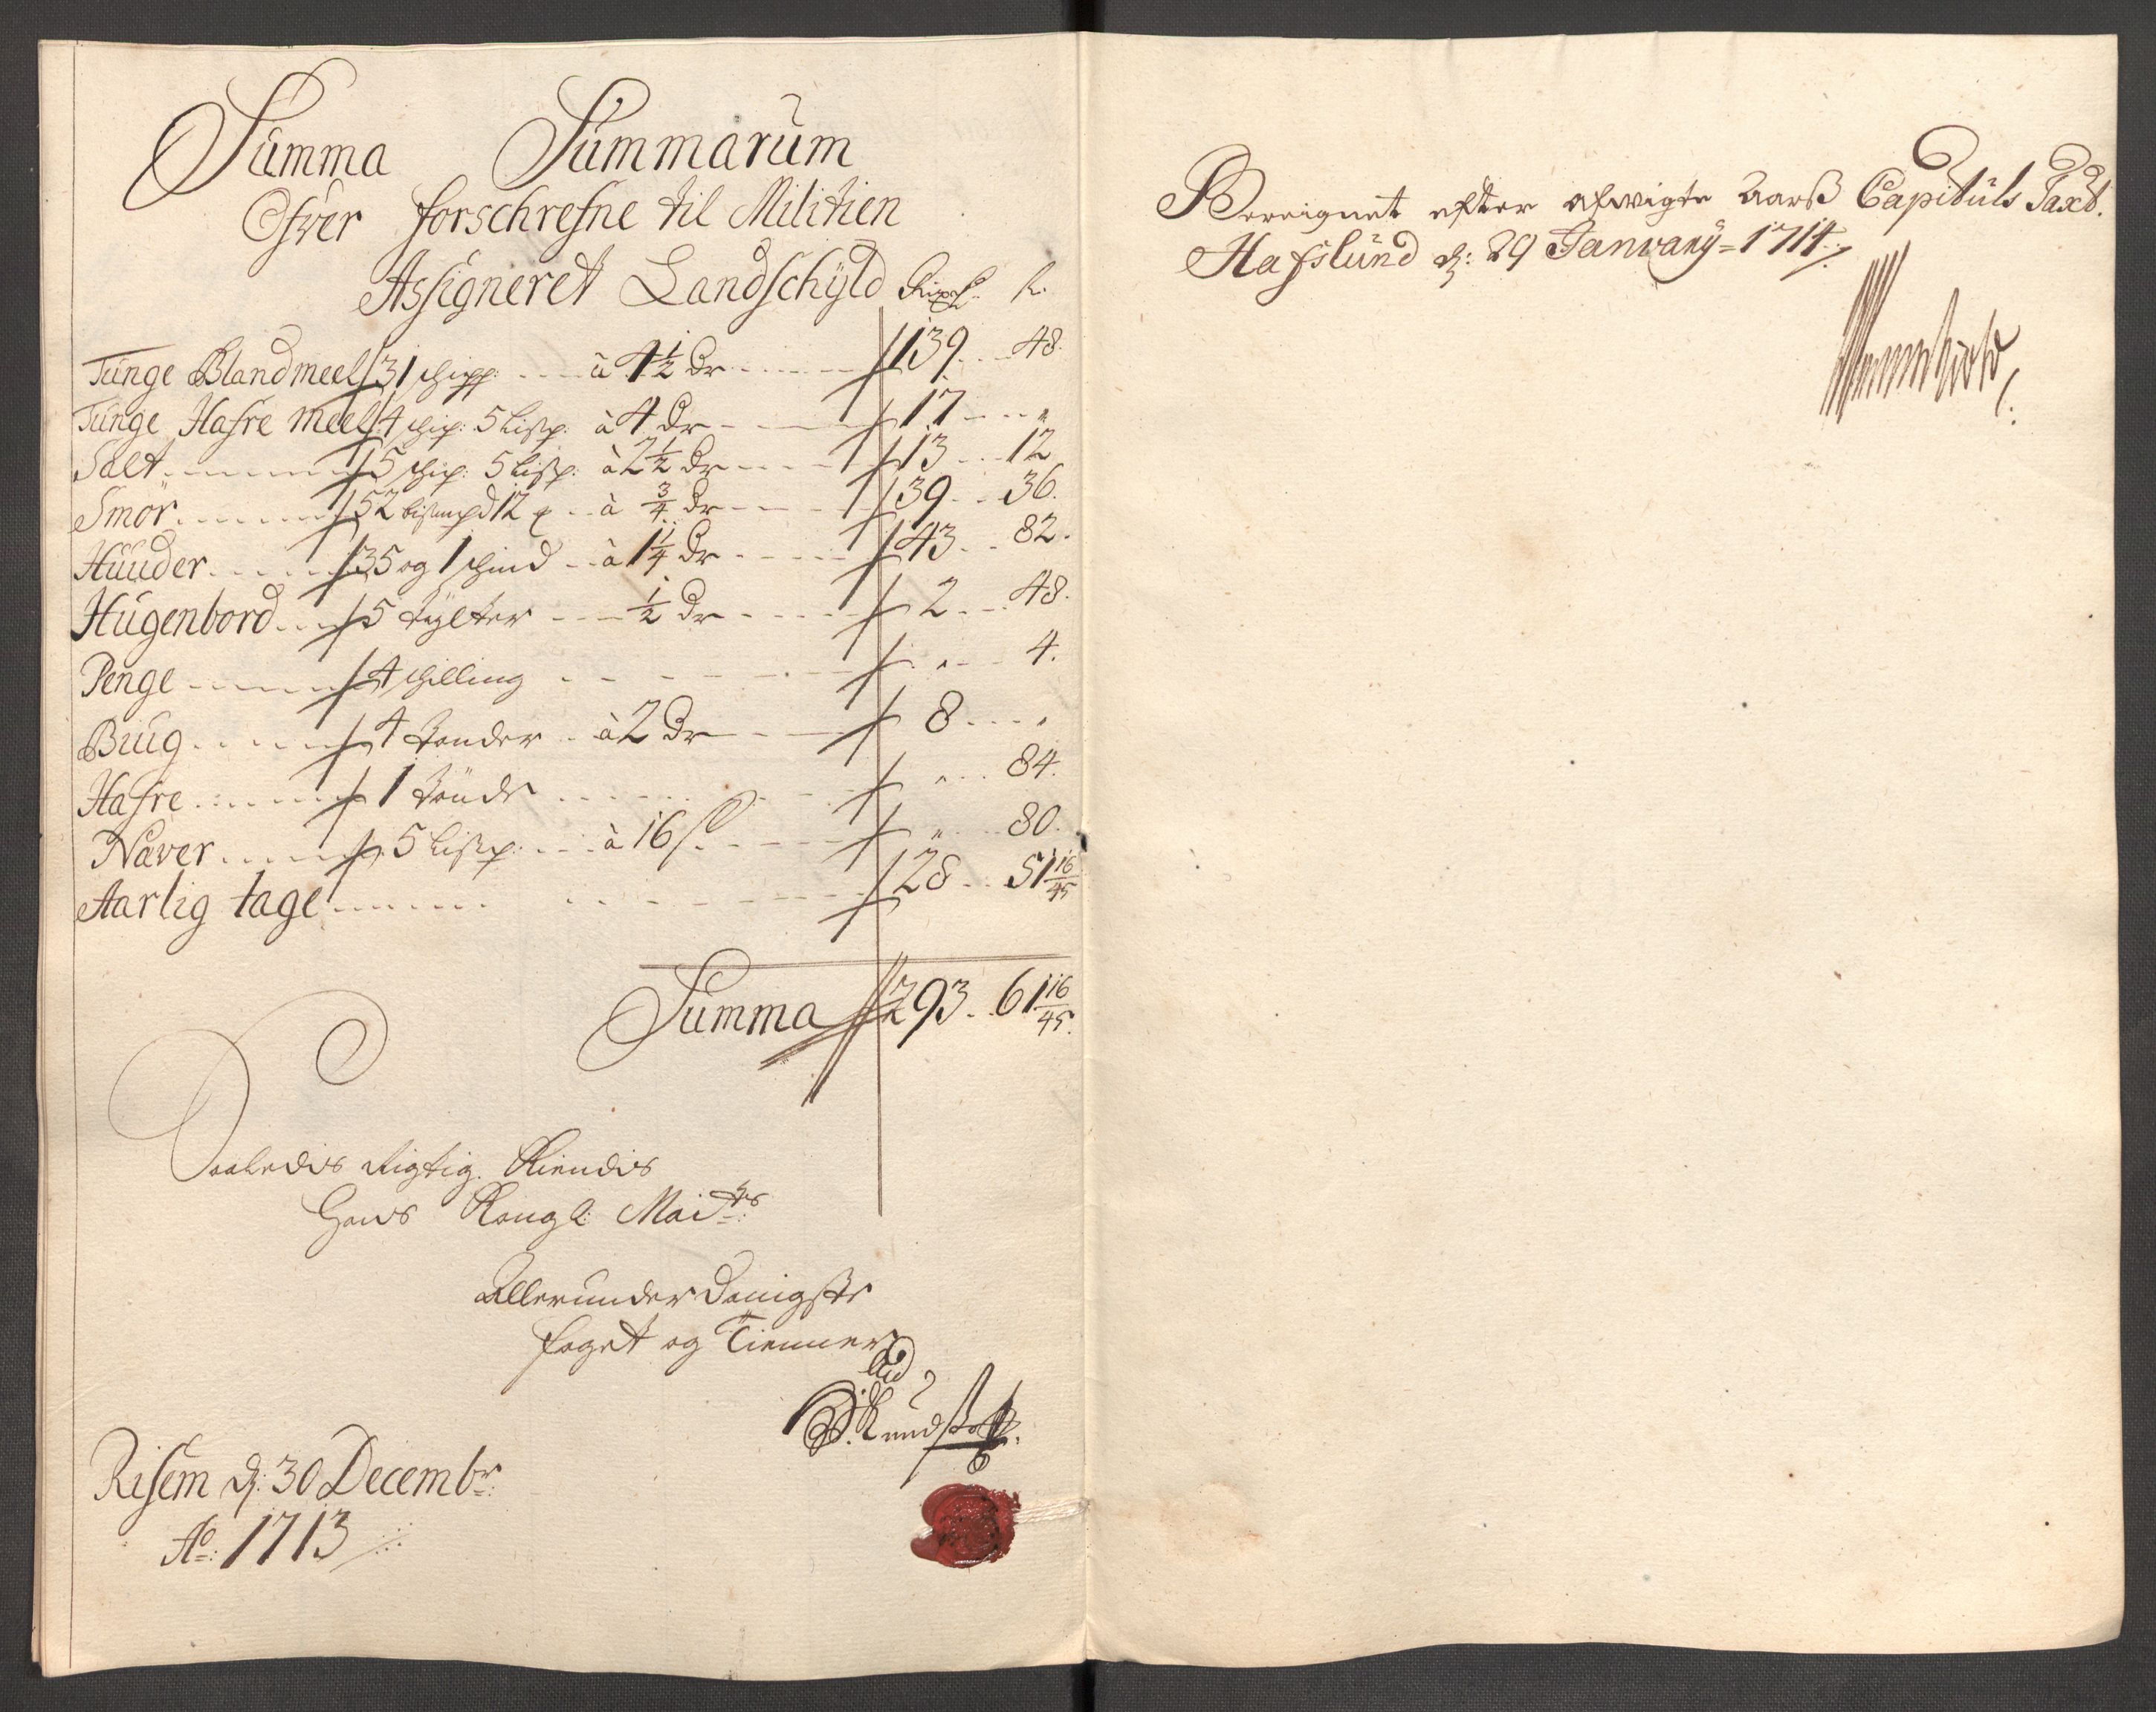 Summa Summarum
Ofver forschrefne til Militien
Assigneret Landschÿld Rixd. s.
Tunge Blandmeel 31 schipp: à 4½ Dr 139 48.
Tunge Hafre meel 4 schip: 5 lisp: à 4 Dr 17 "
Salt 5 schip: 5 lisp: à 2½ Dr 13 12
Smör 52 bismpd 12 à ¾ Dr 39 36.
Huuder 35 og 1 schind à 1¼ Dr 43 82.
Hugenbord 5 tÿlter ½ Dr 2 48.
Penge 4 schilling " 4.
Biug 4 tønder à 2 Dr 8 "
Hafre 1 tønde " 84.
Næver 5 lisp: à 16 s " 80.
Aarlig tage 28 51 16/45
Summa 293 61 16/45.
Saaledis Rigtig. Kiendis
Hans Kongl: Maits:
Allerunderdanigste
foget og Tienner
Risem d: 30 Decembr:
Ao: 1713
Bereignet efter afvigte Aarß Capituls Taxt.
Hafslund d: 29 January 1714